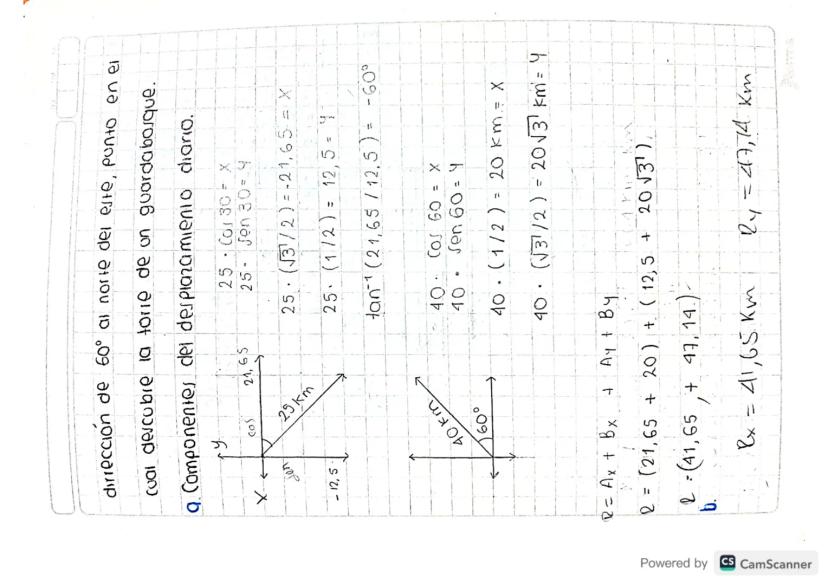 dirrección de 60° al norte del este, punto en el
cual descubre la torre de un guardabosque.
a. Componentes del desplazamiento diario.
y
X
cos
21,65
sen
25 km
-12,5
25 · Cos 30 = x
25 · Sen 30 = y
25 · (√3/2) = -21,65 = x
25 · (1/2) = 12,5 = y
tan⁻¹ (21,65 / 12,5) = -60°
40 km
60°
40 · Cos 60 = x
40 · Sen 60 = y
40 · (1/2) = 20 km = x
40 · (√3/2) = 20√3 km = y
R = Ax + Bx + Ay + By
R = (21,65 + 20) + (12,5 + 20√3)
R = (41,65, + 47,14)
b.
Rx = 41,65 Km Ry = 47,14 Km
Powered by CS CamScanner